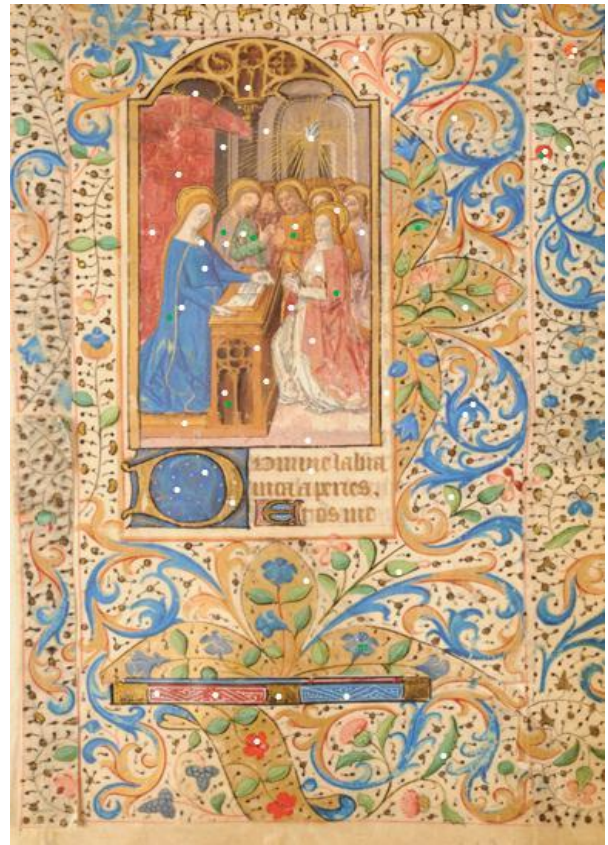 Domine labia
mea aperies.
Et os meu